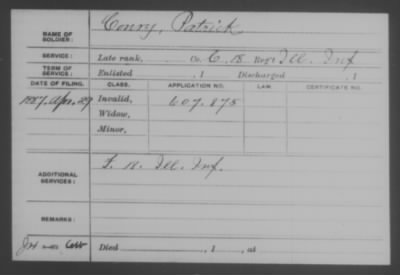 NAME OF SOLDIER: Conry, Patrick
SERVICE: Late rank, Co. C, 18 Reg't Ill. Inf
TERM OF SERVICE: Enlisted , 1 Discharged , 1
DATE OF FILING. CLASS. APPLICATION NO. LAW. CERTIFICATE NO.
1887. Apr. 29 Invalid, 607.875
Widow,
Minor,
ADDITIONAL SERVICES: F. 18. Ill. Inf.
REMARKS:
Died , 1 , at